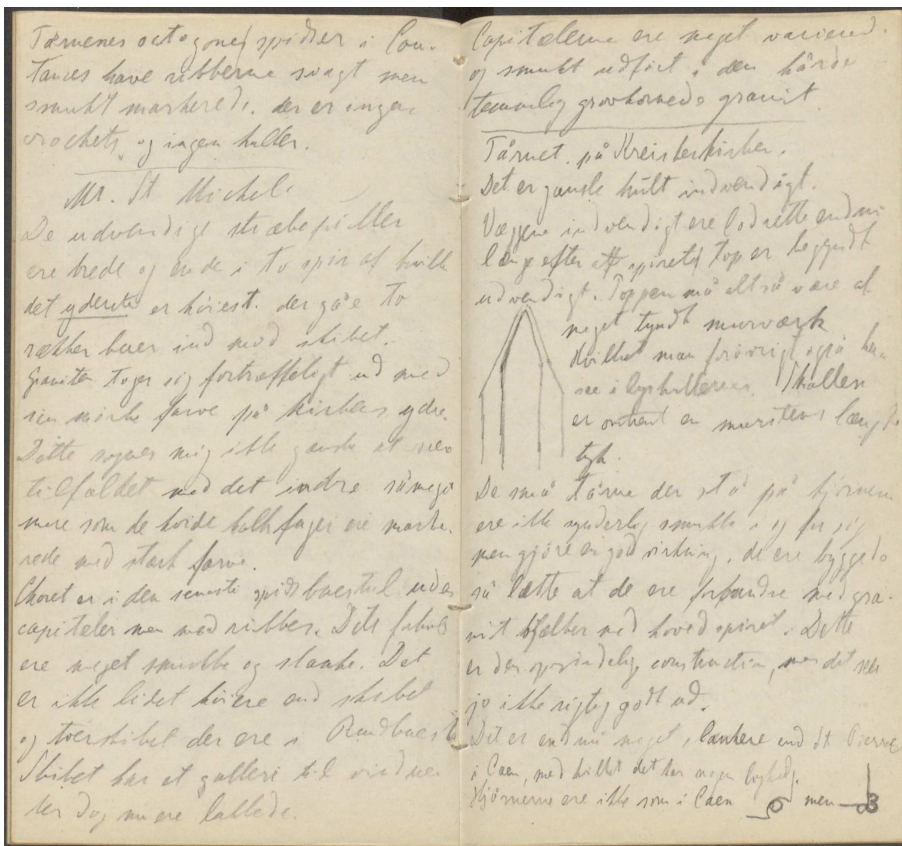 Tårnenes octogoned spidser i Cou-
tances have ribberne svagt men
smukt markerede. der er ingen
crochets og ingen huller.
Mt. St Michel.
De udvendige stræbepiller
ere brede og ende i to spir af hvilke
det yderste er høiest. der gåe to
rækker buer ind mod skibet.
Graniten tager sig fortræffeligt ud med
sin mørke farve på kirkens ydre.
Dette synes mig ikke ganske at være
tilfældet med det indre såmeget
mere som de hvide kalkfuger ere marke-
rede med stærk farve.
Choret er i den seneste spidsbuestiil uden
capiteler men med ribber. Dets forhold
ere meget smukke og slanke. Det
er ikke lidet høiere end skibet
og tverskibet der ere i Rundbuestil
Skibet har et galleri til vinduer
der dog nu ere lukkede.
Capitælerne ere meget varierede
og smukt udført i den hårde
temmelig grovkornede granit.
Tårnet på Kreiskerkirken.
Det er ganske hult indvendigt.
Væggene indvendigt ere lodrette endnu
længe efter at spirets top er begyndt
udvendigt. Toppen må altså være af
meget tyndt murværk
hvilket man forøvrigt også kan
see i lyshullerne. Skallen
er omtrent en murstens længde
tyk.
De små tårne der stå på hjørnerne
ere ikke synderlig smukke i og for sig
men gjøre en god virkning, de ere byggede
så lætte at de ere forbundne med gra-
nit bjælker med hovedspiret. Dette
er den oprindelig construction, men det seer
jo ikke rigtig godt ud.
Det er endnu meget slankere end St Pierre
i Caen, med hvilket det har megen lighed.
Hjørnerne ere ikke som i Caen men